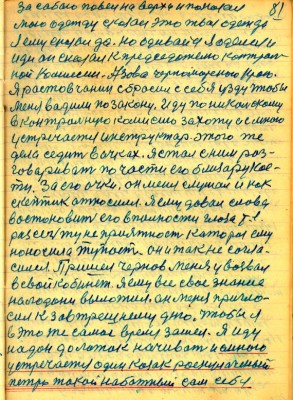 81
За собою повел на верх и показал
мою одежду сказал это твоя одежда
Я ему сказал да. но одивайся Я оделся и
иди он сказал к председателю контрол-
ной комиссии. Азово черноморского краю.
Я растовчанин сбросил с себя узду чтобы
меня вадили по закону. Иду по никольскому
в контролную комисию захожу и самною
устречается инструктар. этого же
дела седит в очках. Я стал с ним раз-
говаривать по части его
ту. За его очки. он меня слушал и как
скептик относился. Я ему давал слова
востоновит его вполности глаза т.е.
разсею ту не приятност каторая ему
наносила тупост. он и так не согла-
сился. Пришел чернов меня узвозвал
в свой кабинет. Я ему все свое знание
на ладони выложил. он меня пригло-
сил к завтрешнему дню. чтобы я
в это же самое время зашел. Я иду
на дон должок начиват и самною
устречается один казак
петро такой набатный сам себя